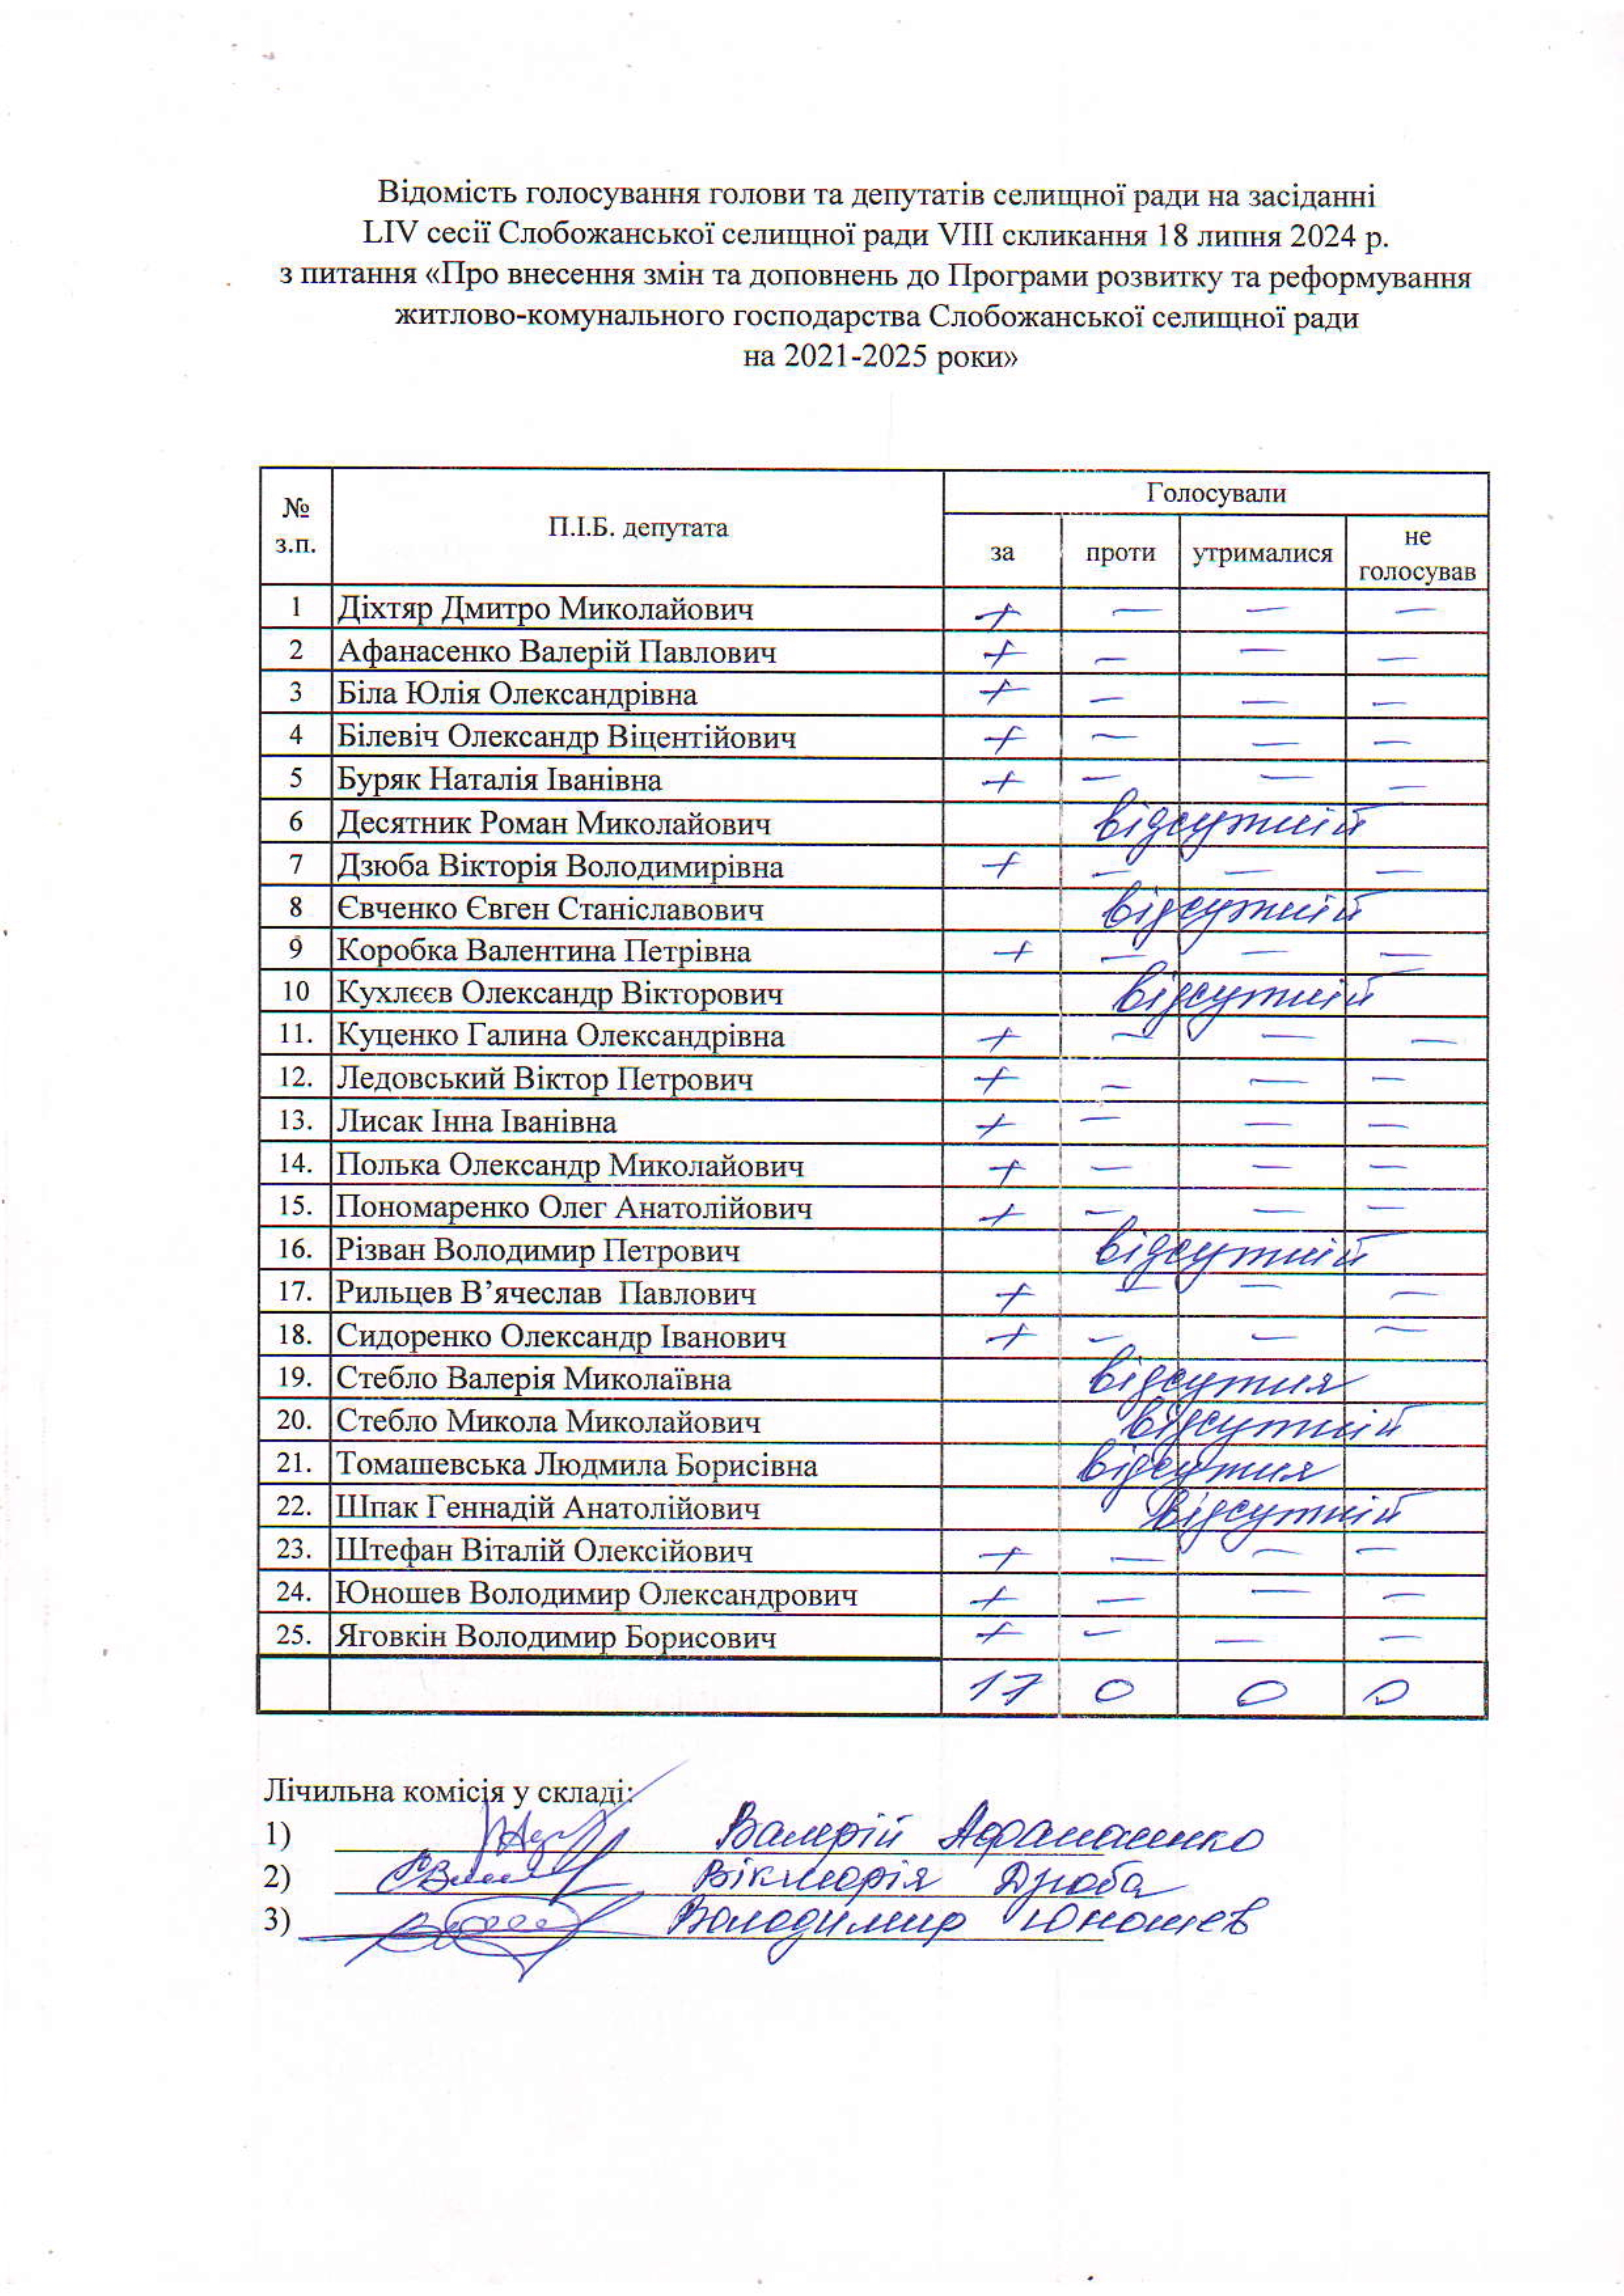 Відомість голосування голови та депутатів селищної ради на засіданні
LIV сесії Слобожанської селищної ради VIII скликання 18 липня 2024 р.
з питання «Про внесення змін та доповнень до Програми розвитку та реформування
житлово-комунального господарства Слобожанської селищної ради
на 2021-2025 роки»
№ з.п. П.І.Б. депутата Голосували
за проти утрималися не голосував
1 Діхтяр Дмитро Миколайович + — — —
2 Афанасенко Валерій Павлович + — — —
3 Біла Юлія Олександрівна + — — —
4 Білевіч Олександр Віцентійович + — — —
5 Буряк Наталія Іванівна + — — —
6 Десятник Роман Миколайович відсутній
7 Дзюба Вікторія Володимирівна + — — —
8 Євченко Євген Станіславович відсутній
9 Коробка Валентина Петрівна + — — —
10 Кухлєєв Олександр Вікторович відсутній
11. Куценко Галина Олександрівна + — — —
12. Ледовський Віктор Петрович + — — —
13. Лисак Інна Іванівна + — — —
14. Полька Олександр Миколайович + — — —
15. Пономаренко Олег Анатолійович + — — —
16. Різван Володимир Петрович відсутній
17. Рильцев В’ячеслав Павлович + — — —
18. Сидоренко Олександр Іванович + — — —
19. Стебло Валерія Миколаївна відсутня
20. Стебло Микола Миколайович відсутній
21. Томашевська Людмила Борисівна відсутня
22. Шпак Геннадій Анатолійович відсутній
23. Штефан Віталій Олексійович + — — —
24. Юношев Володимир Олександрович + — — —
25. Яговкін Володимир Борисович + — — —
17 0 0 0
Лічильна комісія у складі:
1) Валерій Афанасенко
2) Вікторія Дзюба
3) Володимир Юношев